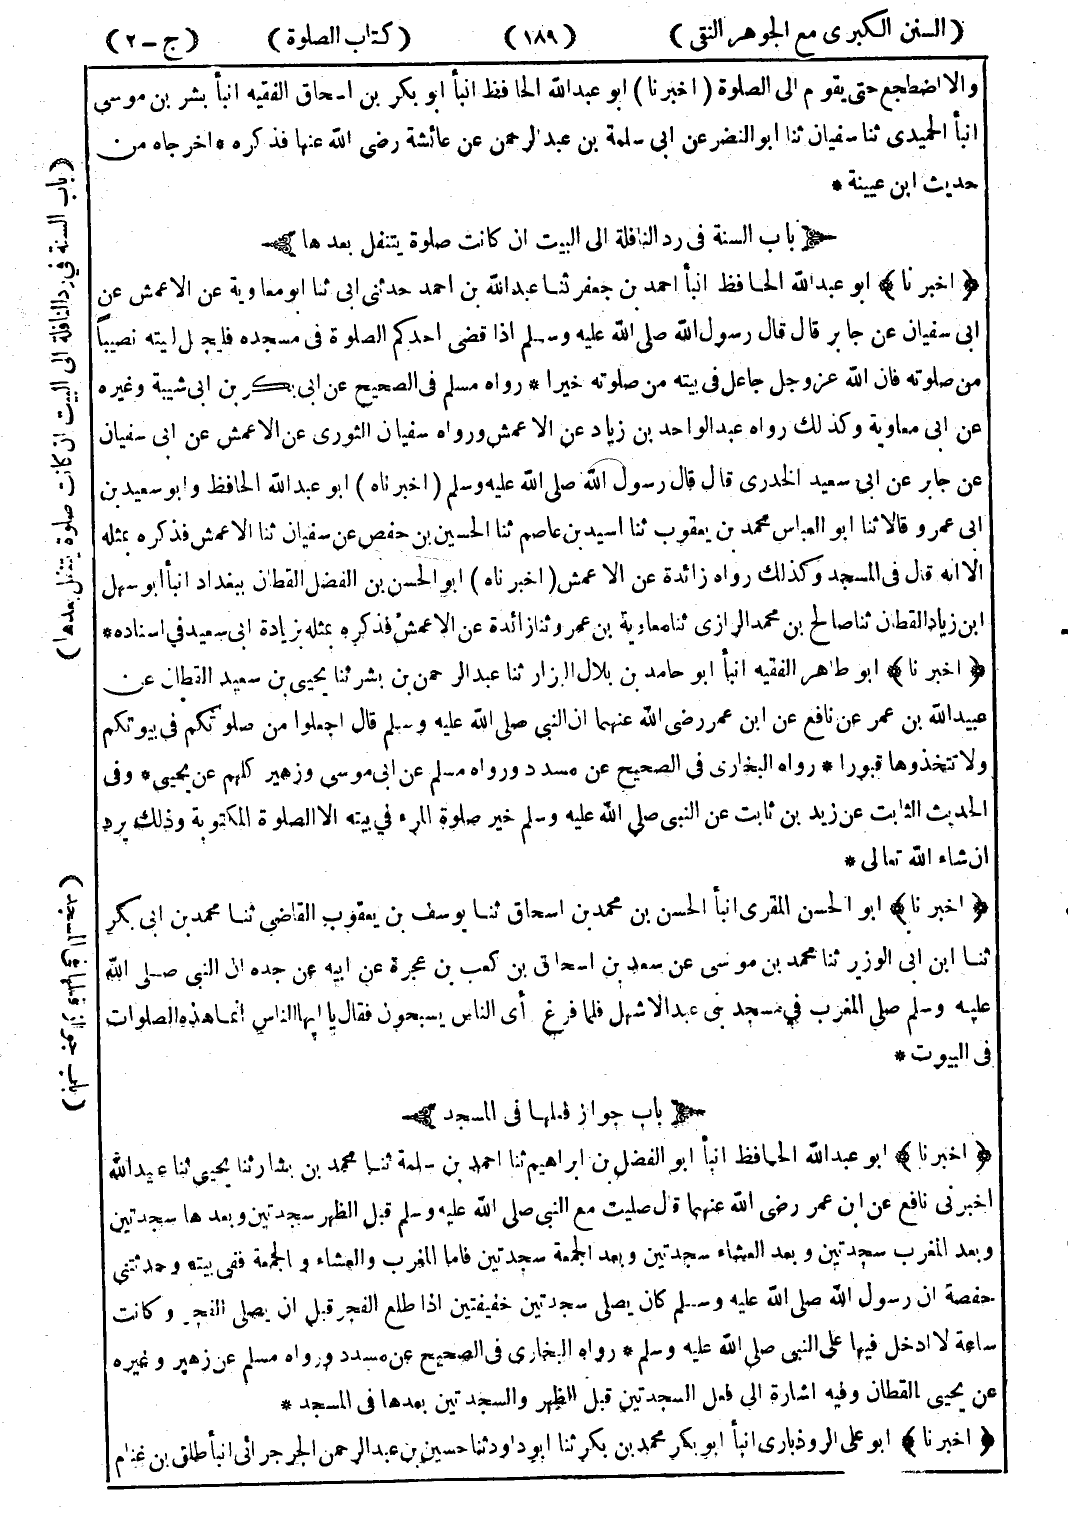 (السنن الكبرى مع الجوهر النقى) (١٨٩) (كتاب الصلوة) (ج-٢)
والا اضطجع حتى يقوم الى الصلوة (اخبرنا) ابو عبدالله الحافظ انبأ ابو بكر بن اسحاق الفقيه انبأ بشر بن موسى
انبأ الحميدى ثنا سفيان ثنا ابوالنضر عن ابى سلمة بن عبدالرحمن عن عائشة رضى الله عنها فذكره * اخرجاه من
حديث ابن عيينة *
باب السنة فى رد النافلة الى البيت ان كانت صلوة يتنفل بعدها
﴿اخبرنا﴾ ابو عبدالله الحافظ انبأ احمد بن جعفر ثنا عبدالله بن احمد حدثنى ابى ثنا ابو معاوية عن الاعمش عن
ابى سفيان عن جابر قال قال رسول الله صلى الله عليه وسلم اذا قضى احدكم الصلوة فى مسجده فليجعل لبيته نصيباً
من صلوته فان الله عزوجل جاعل فى بيته من صلوته خيرا * رواه مسلم فى الصحيح عن ابى بكر بن ابى شيبة وغيره
عن ابى معاوية وكذلك رواه عبدالواحد بن زياد عن الاعمش ورواه سفيان الثورى عن الاعمش عن ابى سفيان
عن جابر عن ابى سعيد الخدرى قال قال رسول الله صلى الله عليه وسلم (اخبرناه) ابو عبدالله الحافظ وابو سعيد بن
ابى عمرو قالا ثنا ابو العباس محمد بن يعقوب ثنا اسيد بن عاصم ثنا الحسين بن حفص عن سفيان ثنا الاعمش فذكره بمثله
الا انه قال فى المسجد وكذلك رواه زائدة عن الاعمش (اخبرناه) ابو الحسن بن الفضل القطان ببغداد انبأ ابو سهل
ابن زياد القطان ثنا صالح بن محمد الرازى ثنا معاوية بن عمرو ثنا زائدة عن الاعمش فذكره بمثله بزيادة ابى سعيد في اسناده *
﴿اخبرنا﴾ ابو طاهر الفقيه انبأ ابو حامد بن بلال البزار ثنا عبدالرحمن بن بشر ثنا يحيى بن سعيد القطان عن
عبيدالله بن عمر عن نافع عن ابن عمر رضى الله عنهما ان النبى صلى الله عليه وسلم قال اجعلوا من صلوتكم فى بيوتكم
ولا تتخذوها قبورا * رواه البخارى فى الصحيح عن مسدد ورواه مسلم عن ابى موسى وزهير كلهم عن يحيى * وفى
الحديث الثابت عن زيد بن ثابت عن النبى صلى الله عليه وسلم خير صلوة المرء فى بيته الا الصلوة المكتوبة وذلك يرد
ان شاء الله تعالى *
﴿اخبرنا﴾ ابو الحسن المقرى انبأ الحسن بن محمد بن اسحاق ثنا يوسف بن يعقوب القاضى ثنا محمد بن ابى بكر
ثنا ابن ابى الوزير ثنا محمد بن موسى عن سعد بن اسحاق بن كعب بن عجرة عن ابيه عن جده ان النبى صلى الله
عليه وسلم صلى المغرب في مسجد بنى عبدالاشهل فلما فرغ أى الناس يسبحون فقال يا ايها الناس انما هذه الصلوات
فى البيوت *
باب جواز فعلها فى المسجد
﴿اخبرنا﴾ ابو عبدالله الحافظ انبأ ابو الفضل بن ابراهيم ثنا احمد بن سلمة ثنا محمد بن بشار ثنا يحيى ثنا عبيدالله
اخبرنى نافع عن ابن عمر رضى الله عنهما قال صليت مع النبى صلى الله عليه وسلم قبل الظهر سجدتين وبعدها سجدتين
وبعد المغرب سجدتين وبعد العشاء سجدتين وبعد الجمعة سجدتين فاما المغرب والعشاء والجمعة ففى بيته وحدثتنى
حفصة ان رسول الله صلى الله عليه وسلم كان يصلى سجدتين خفيفتين اذا طلع الفجر قبل ان يصلى الفجر وكانت
ساعة لا ادخل فيها على النبى صلى الله عليه وسلم * رواه البخارى فى الصحيح عن مسدد ورواه مسلم عن زهير وغيره
عن يحيى القطان وفيه اشارة الى فعل السجدتين قبل الظهر والسجدتين بعدها فى المسجد *
﴿اخبرنا﴾ ابو على الروذبارى انبأ ابو بكر محمد بن بكر ثنا ابو داود ثنا حسين بن عبدالرحمن الجرجرائى انبأ طلق بن غنام
(باب السنة في رد النافلة الى البيت ان كانت صلوة يتنفل بعدها)
(باب جواز فعلها فى المسجد)